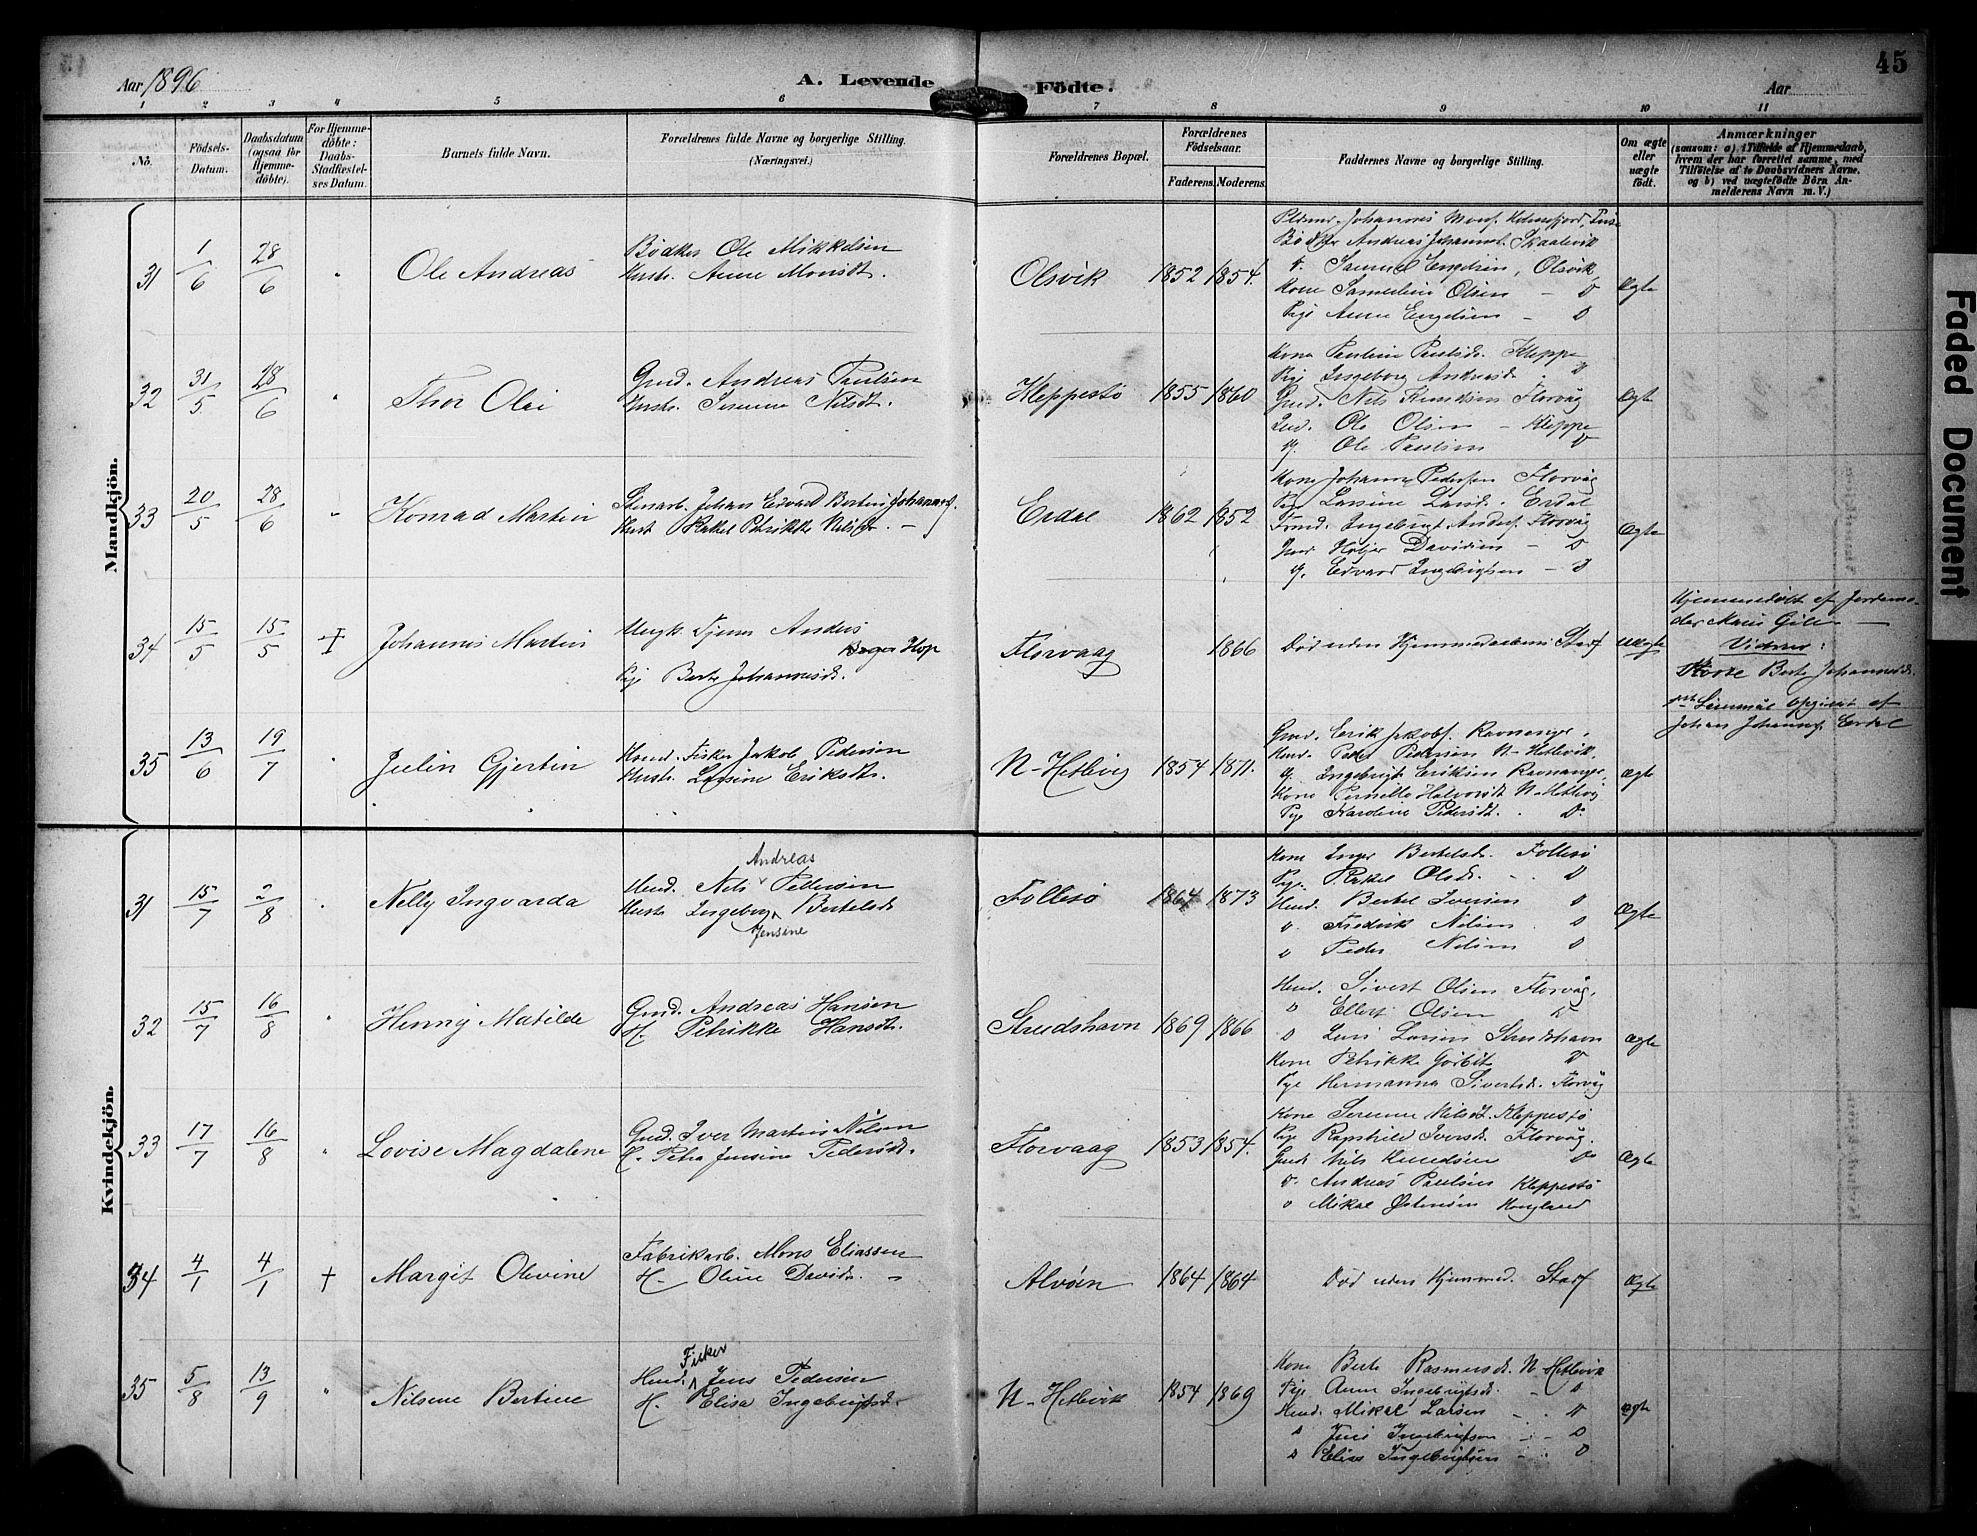 45
Aar 1896
A. Levende Födte.
Aar
1 2 3 4 5 6 7 8 9 10 11
No.
Födsels-Datum.
Daabsdatum (ogsaa for Hjemme-döbte).
For Hjemme-döbte: Daabs-Stadfestel-ses Datum.
Barnets fulde Navn.
Forældrenes fulde Navne og borgerlige Stilling. (Næringsvei.)
Forældrenes Bopæl.
Forældrenes Födselsaar.
Faderens. Moderens.
Faddernes Navne og borgerlige Stilling.
Om ægte eller uægte födt.
Anmærkninger
(saasom: a) i Tilfælde af Hjemmedaab, hvem der har forrettet samme, med Tilföielse af to Daabsvidners Navne, og b) ved uægtefödte Börn An-melderens Navn m. V.)
Mandkjön.
31 1/6 28/6 " Ole Andreas
Bødker Ole Mikkelsen
Hustr. Anne Monsdt.
Olsvik 1852 1854.
Bødker Andreas Johannes. Skaalevik
Engelsen, Olsvik
Kone Olsen — D
Pige Anne Engelsen — D
Ægte
32 31/5 28/6 " Thor Olai
Gmd. Andreas Paulsen
Hustr. Serine Nilsdt.
Kleppestø 1855 1860
Kone Pauline Paulsdt. Kleppe
Pige Ingeborg Andreasd.
Gmd. Nils Knudsen Florvåg
Ole Olsen — Kleppe
Ole Paulsen D
Ægte
33 20/5 28/6 " Konrad Martin
Stenarb. Johan Edvard Bertin Johannes.
Hust. Rakel Petrikke Nilsdr. —
Erdal 1862 1852
Kone Johanne Pedersen Florvåg
Pige Larsine Larsd. Erdal
Ingebrigt Anders. Florvåg
Davidsen — D
Edvard Ingebrigtsen — D
Ægte
34 15/5 15/5 † Johannes Martin
Ungk. Anders
Hop
Pige Berte Johannesdt.
Florvaag 1866
Død uden Hjemmedaabens Stadf
Uægte
Hjemmedøbt af Jordemo-
der Marie
Vidner:
Berte Johannesdt.
opgivet af
Johan Johannes. Erdal
35 13/6 19/7 " Julin Gjertin
Fisker Jakob Pedersen
Hustr. Larsine Eriksdt.
N-Hetlevig 1854 1871.
Gmd. Erik Jakobs. Ravnanger.
Hmd. Peder Pedersen N-Hetlevik.
Ingebrigt Eriksen Ravnanger,
Kone Pernille Halvorsdt. N-Hetlevig
Pige Karoline Pedersdt. D.
Ægte
Kvindekjön.
31 15/7 2/8 " Nelly Ingvarda
Andreas
Hmd. Nels Pettersen
Hustr. Ingeborg Bertelsdt
Jensine
Follesø 1864 1873
Kone Inger Bertelsdr. Follesø
Pige Rakel Olsdr. D
Hmd. Bertel Iversen D
Fredrik Nilsen D
Peder Nilsen D
Ægte
32 15/7 16/8 " Henny Matilde
Gmd. Andreas Hansen
H. Petrikke Hansdt.
Strudshavn 1869 1866
Hmd. Sivert Olsen Florvåg,
Ellert Olsen D
Lars Larsen Strudshavn
Kone Petrikke D
Pige Hermanna Sivertsd. Florvåg
Ægte
33 17/7 16/8 " Lovise Magdalene
Gmd. Iver Martin Nilsen
H. Petra Jensine Pedersdt.
Florvaag 1853 1854.
Kone Serine Nilsdt. Kleppestø
Pige Ragnhild Iversdt. Florvåg.
Gmd. Nils Knudsen D
Andreas Paulsen Kleppestø
Mikal Østensen
Ægte
34 4/1 4/1 † Margit Olevine
Fabrikarb. Mons Eliassen
H. Oline Davidsdr. —
Alvøen 1864 1864
Død uden Hjemmed. Stadf
Ægte
35 5/8 13/9 " Nilsine Bertine
Fisker
Hmd. Jens Pedersen
H. Elisa Ingebrigtsd.
N-Hetlevik 1854 1869
Kone Berte Rasmusdt. N-Hetlevik
Pige Anna Ingebrigtsd. D
Hmd. Mikal Larsen D
Jens Ingebrigtsen D
Elias Ingebrigtsen D
Ægte
Faded Document